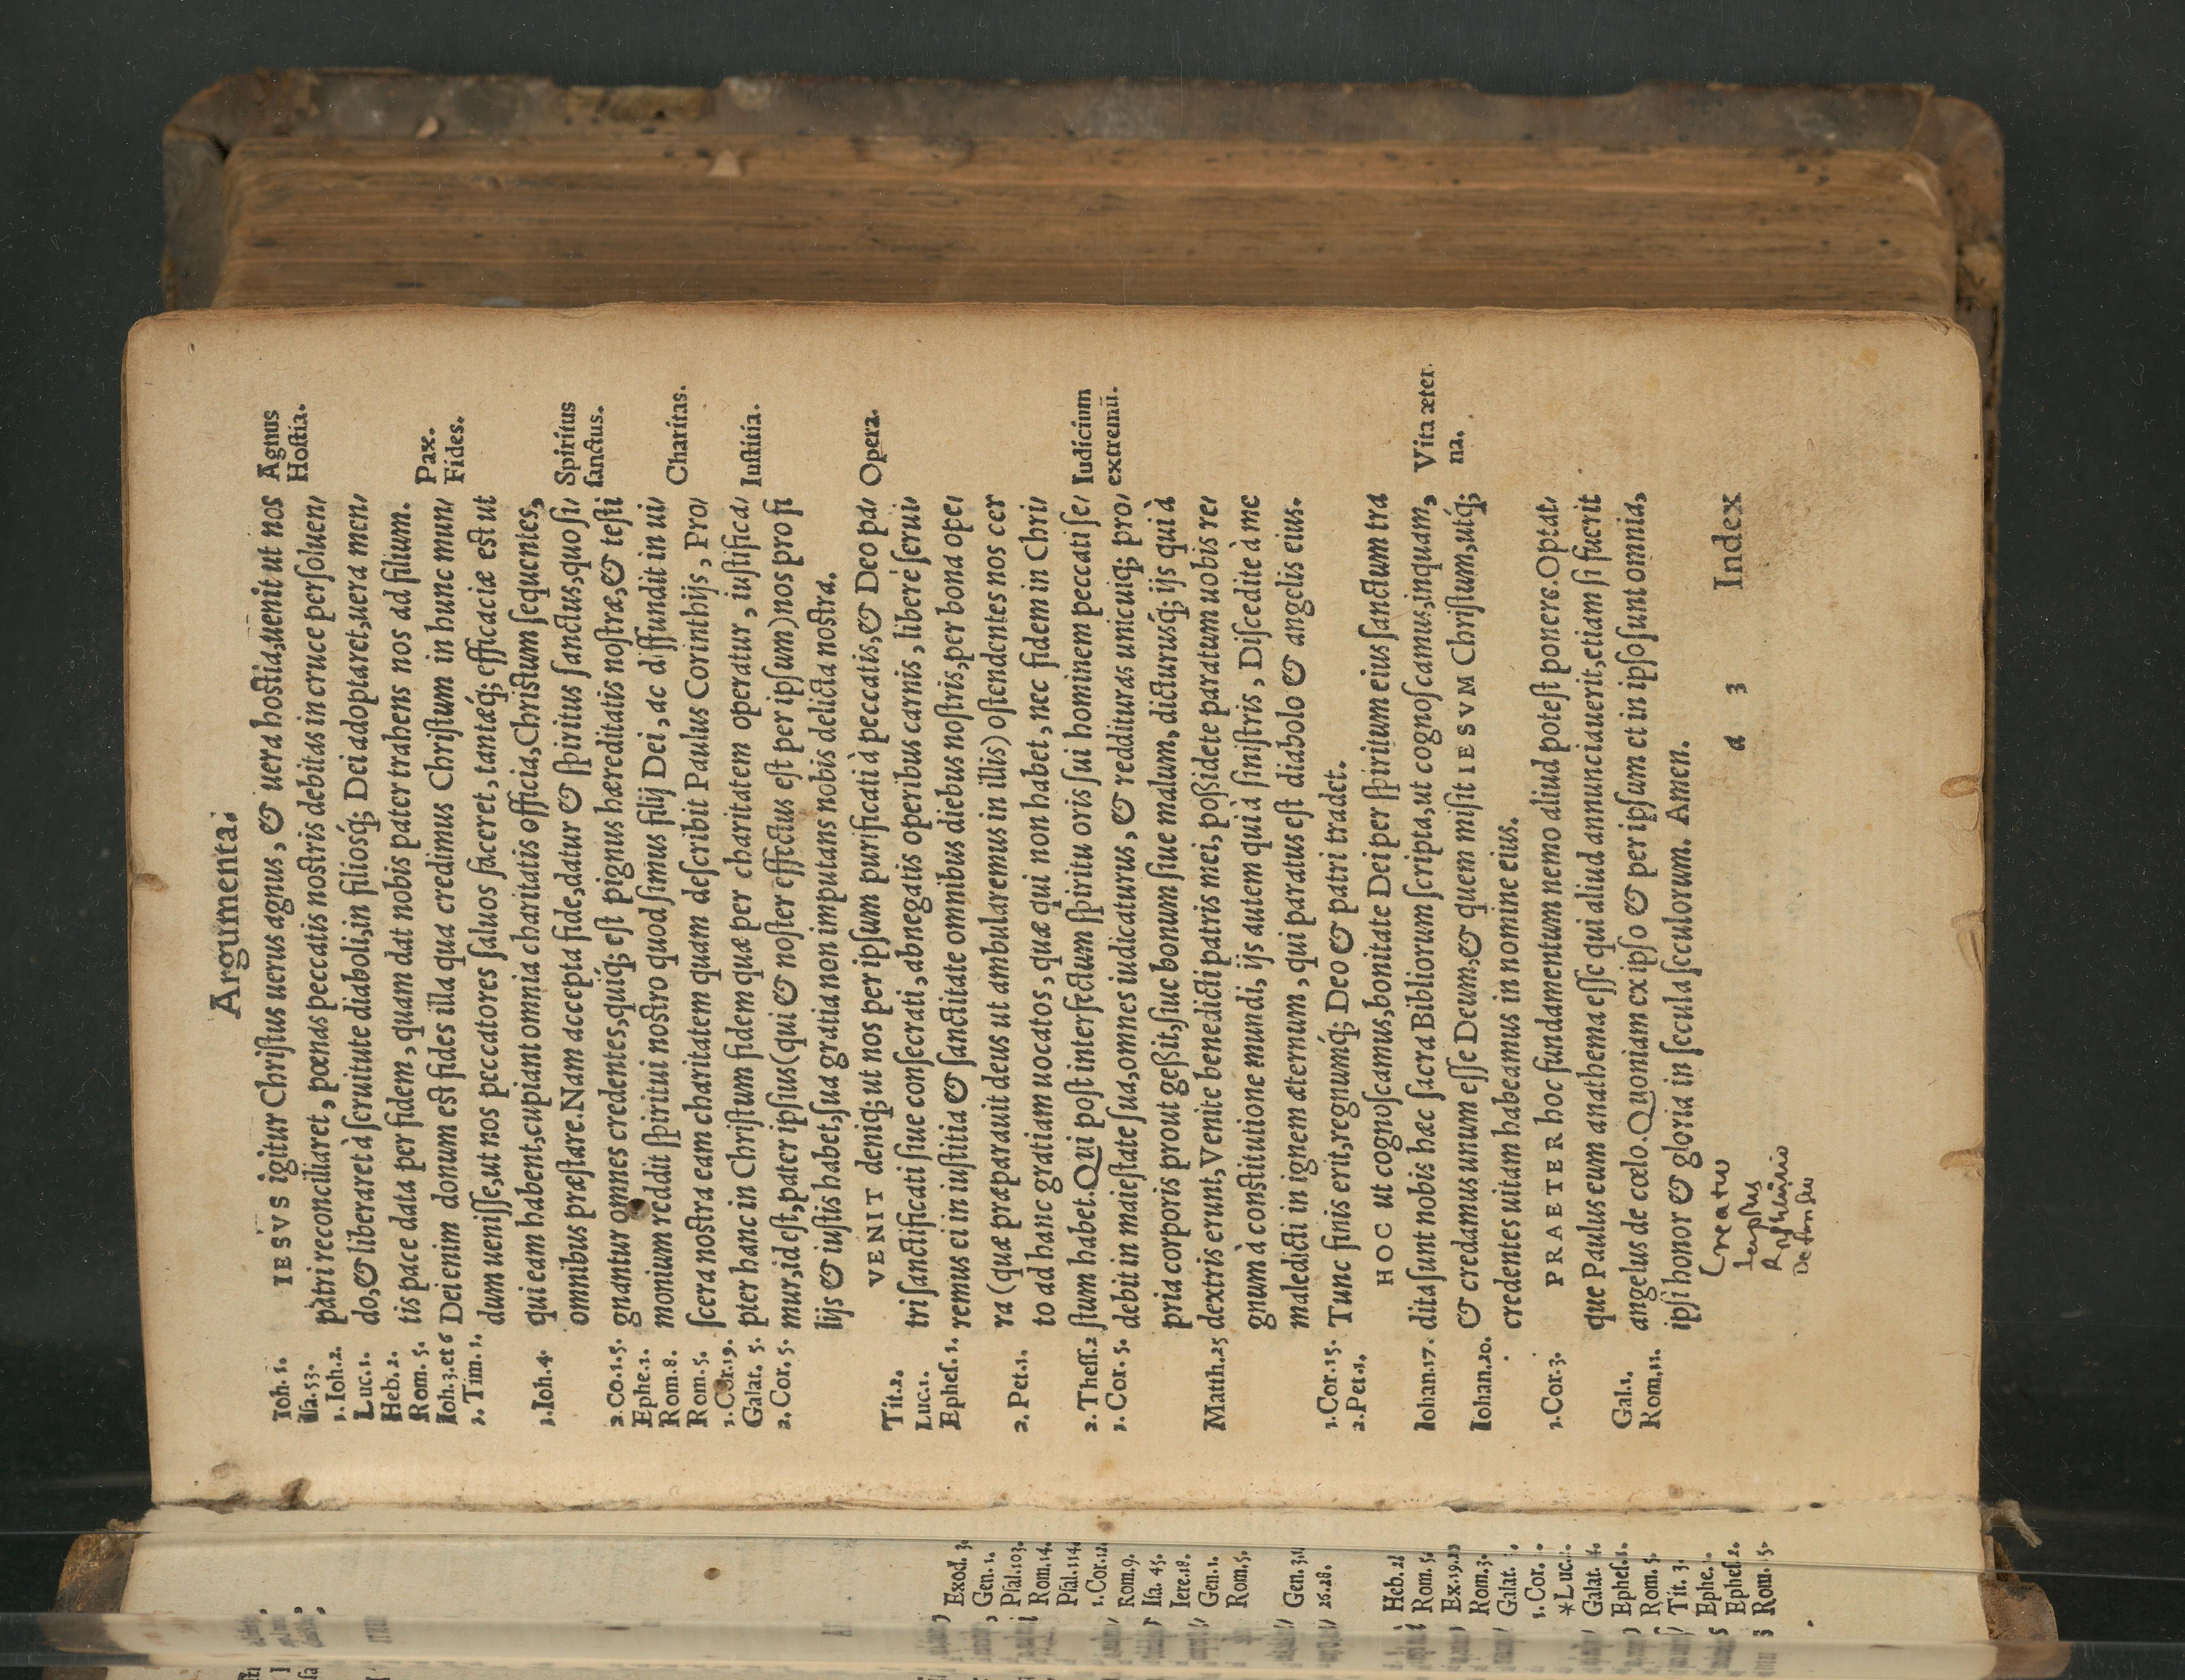 Argumenta.
Ioh. 1. IESVS igitur Chriſtus uerus agnus, & uera hoſtia, uenit ut nos Agnus
Iſa. 53. patri reconciliaret, pœnas peccatis noſtris debitas in cruce perſoluen/ Hoſtia.
1. Ioh. 2.
Luc. 1. do, & liberaret à ſeruitute diaboli, in filiosq́; Dei adoptaret, uera men/
Heb. 2. tis pace data per fidem, quam dat nobis pater trahens nos ad filium. Pax.
Rom. 5.
Ioh. 3. et 6 Dei enim donum eſt fides illa qua credimus Chriſtum in hunc mun/ Fides.
1. Tim. 1. dum ueniſſe, ut nos peccatores ſaluos faceret, tantæq́; efficaciæ eſt ut
1. Ioh. 4. qui eam habent, cupiant omnia charitatis officia, Chriſtum ſequentes,
omnibus præſtare. Nam accepta fide, datur & ſpiritus ſanctus, quo ſi/ Spiritus
2. Co. 1. 5. gnantur omnes credentes, quiq́; eſt pignus hæreditatis noſtræ, & teſti ſanctus.
Ephe. 1.
Rom. 8. monium reddit ſpiritui noſtro quod ſimus filij Dei, ac diffundit in ui/
Rom. 5. ſcera noſtra eam charitatem quam deſcribit Paulus Corinthijs, Pro/ Charitas.
1. Cor. 19.
Galat. 5. pter hanc in Chriſtum fidem quæ per charitatem operatur, iuſtifica/ Iuſtitia.
2. Cor. 5. mur, id eſt, pater ipſius (qui & noſter effectus eſt per ipſum) nos pro fi
lijs & iuſtis habet, ſua gratia non imputans nobis delicta noſtra.
VENIT deniq; ut nos per ipſum purificati à peccatis, & Deo pa/ Opera.
Tit. 2. tri ſanctificati ſiue conſecrati, abnegatis operibus carnis, liberè ſerui/
Luc. 1.
Epheſ. 1. remus ei in iuſtitia & ſanctitate omnibus diebus noſtris, per bona ope/
ra (quæ præparauit deus ut ambularemus in illis) oſtendentes nos cer
2. Pet. 1. to ad hanc gratiam uocatos, quæ qui non habet, nec fidem in Chri/
2. Theſſ. 2 ſtum habet. Qui poſt interfectum ſpiritu oris ſui hominem peccati ſe/ Iudicium
1. Cor. 5. debit in maieſtate ſua, omnes iudicaturus, & redditurus unicuiq; pro/ extremū.
pria corporis prout geßit, ſiue bonum ſiue malum, dicturusq́; ijs qui à
Matth. 25 dextris erunt, Venite benedicti patris mei, poßidete paratum uobis re/
gnum à conſtitutione mundi, ijs autem qui à ſiniſtris, Diſcedite à me
maledicti in ignem æternum, qui paratus eſt diabolo & angelis eius.
1. Cor. 15. Tunc finis erit, regnumq́; Deo & patri tradet.
2. Pet. 1. HOC ut cognoſcamus, bonitate Dei per ſpiritum eius ſanctum tra
Iohan. 17. dita ſunt nobis hæc ſacra Bibliorum ſcripta, ut cognoſcamus, inquam, Vita æter
& credamus unum eſſe Deum, & quem miſit IESVM Chriſtum, utq́; na.
Iohan. 20. credentes uitam habeamus in nomine eius.
1. Cor. 3. PRAETER hoc fundamentum nemo aliud poteſt ponere. Optat/
que Paulus eum anathema eſſe qui aliud annunciauerit, etiam ſi fuerit
Gal. 1. angelus de cœlo. Quoniam ex ipſo & per ipſum et in ipſo ſunt omnia,
Rom. 11. ipſi honor & gloria in ſecula ſeculorum. Amen.
Creatus
Lapſus
a 3 Index
Exod. 3.
Gen. 1.
Pſal. 103.
Rom. 14.
Pſal. 114.
1. Cor. 12.
Rom. 9.
Iſa. 45.
Iere. 18.
Gen. 1.
Rom. 5.
Gen. 3.
26. 28.
Heb. 2
Rom. 5.
Ex. 19.
Rom. 3.
Galat.
1. Cor.
*Luc.
Galat. 4.
Epheſ. 1.
Rom. 5.
Tit. 3.
Ephe.
Epheſ. 2.
Rom. 5.